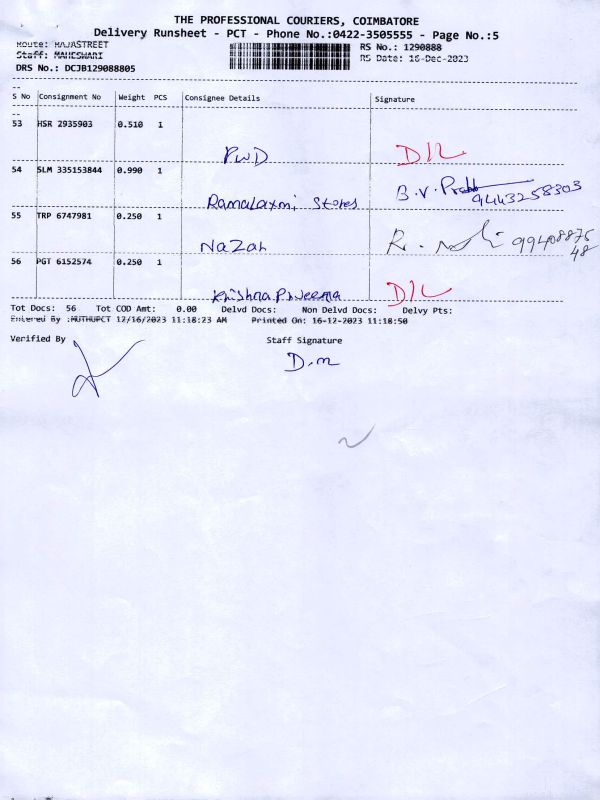 THE PROFESSIONAL COURIERS, COIMBATORE
Delivery Runsheet - PCT - Phone No.:0422-3505555 - Page No.:5
Route: RAJASTREET
RS No.: 1290888
Staff: MAHESWARI
RS Date: 16-Dec-2023
DRS No.: DCJB129088805
S No Consignment No Weight PCS Consignee Details Signature
53 HSR 2935903 0.510 1
PWD D/L
54 SLM 335153844 0.990 1
Ramalaxmi Stores B.V. 9443258303
55 TRP 6747981 0.250 1
Nazar R. 99408876
48
56 PGT 6152574 0.250 1
Krishna D/L
Tot Docs: 56 Tot COD Amt: 0.00 Delvd Docs: Non Delvd Docs: Delvy Pts:
Entered By :MUTHUPCT 12/16/2023 11:18:23 AM Printed On: 16-12-2023 11:18:50
Verified By Staff Signature
D.m